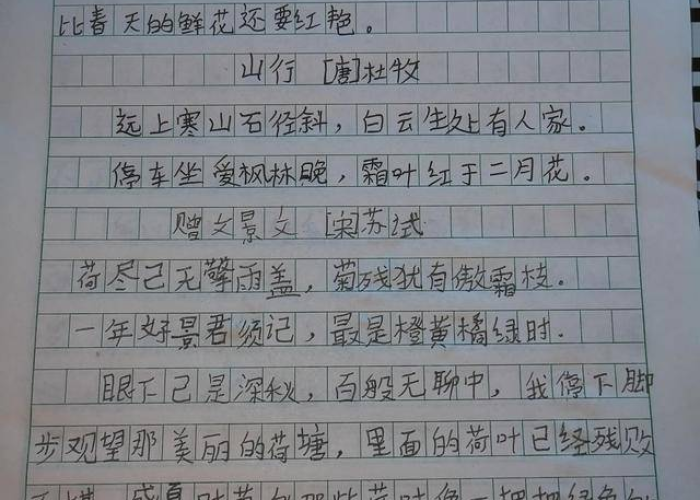 比春天的鲜花还要红艳。
山行 [唐]杜牧
远上寒山石径斜，白云生处有人家。
停车坐爱枫林晚，霜叶红于二月花。
赠文景文 [宋]苏试
荷尽已无擎雨盖，菊残犹有傲霜枝.
一年好景君须记，最是橙黄橘绿时.
眼下已是深秋，百般无聊中，我停下脚
步观望那美丽的荷塘，里面的荷叶已经残败